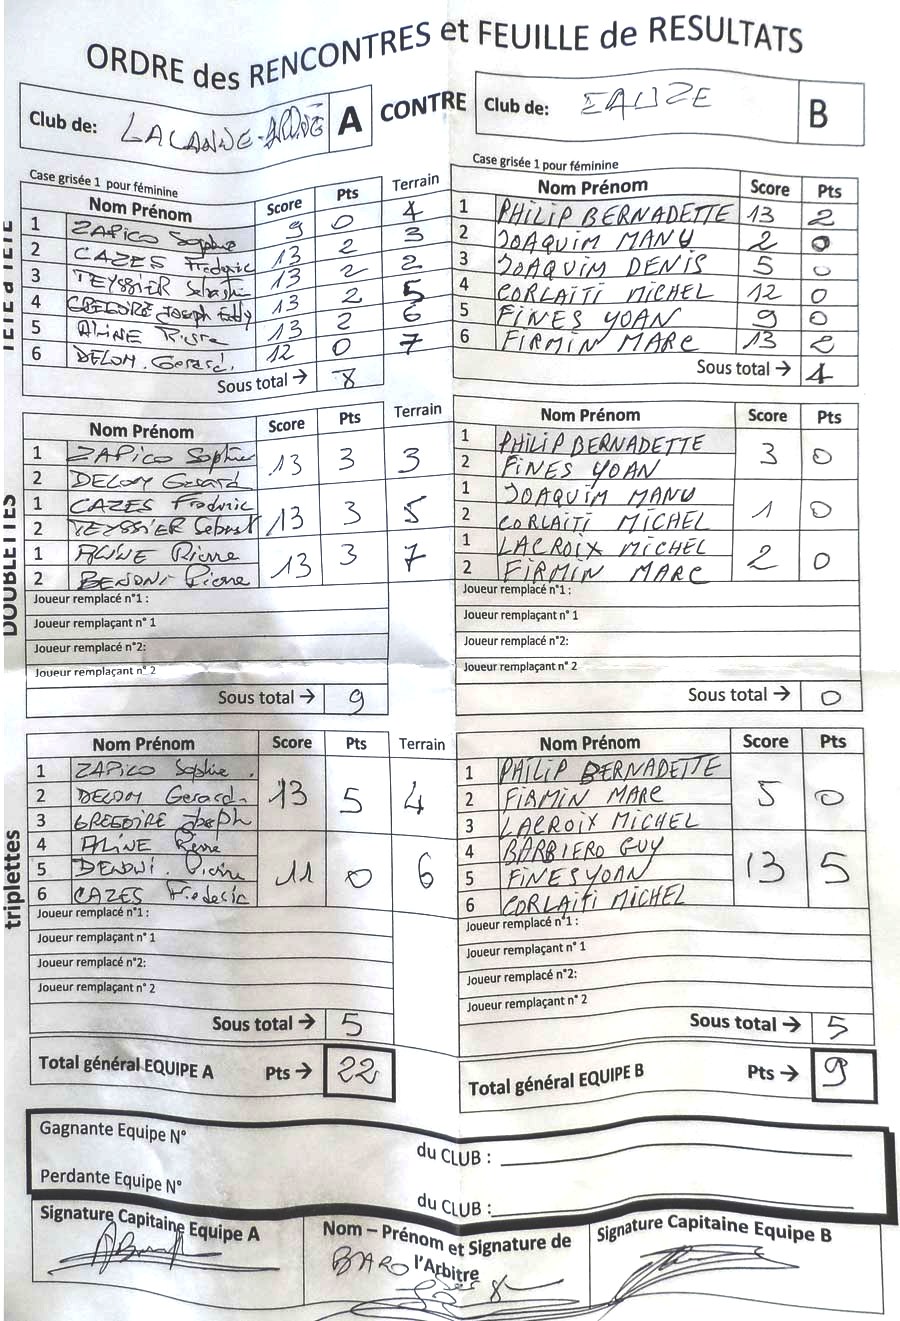 ORDRE des RENCONTRES et FEUILLE de RESULTATS
Club de: A CONTRE Club de: EAUZE B
Case grisée 1 pour féminine Case grisée 1 pour féminine
Nom Prénom Score Pts Terrain Nom Prénom Score Pts
TETE à TETE
1 ZAPICO Sophie 9 0 4 1 PHILIP BERNADETTE 13 2
2 CAZES Frederic 13 2 3 2 JOAQUIM MANU 2 0
3 TEYSSIER Sebastien 13 2 2 3 JOAQUIM DENIS 5 0
4 GREGOIRE Joseph Eddy 13 2 5 4 CORLAITI MICHEL 12 0
5 ALINE Pierre 13 2 6 5 FINES YOAN 9 0
6 DELOM. Gerard. 12 0 7 6 FIRMIN MARC 13 2
Sous total → 8 Sous total → 4
Nom Prénom Score Pts Terrain Nom Prénom Score Pts
DOUBLETTES
1 ZAPICO Sophie 13 3 3 1 PHILIP BERNADETTE 3 0
2 DELOM Gerard 2 FINES YOAN
1 CAZES Frederic 13 3 5 1 JOAQUIM MANU 1 0
2 TEYSSIER Sebast 2 CORLAITI MICHEL
1 ALINE Pierre 13 3 7 1 LACROIX MICHEL 2 0
2 Pierre 2 FIRMIN MARC
Joueur remplacé n°1 : Joueur remplacé n°1 :
Joueur remplaçant n° 1 Joueur remplaçant n° 1
Joueur remplacé n°2: Joueur remplacé n°2:
Joueur remplaçant n° 2 Joueur remplaçant n° 2
Sous total → 9 Sous total → 0
Nom Prénom Score Pts Terrain Nom Prénom Score Pts
triplettes
1 ZAPICO Sophie . 13 5 4 1 PHILIP BERNADETTE 5 0
2 DELOM Gerard. 2 FIRMIN MARC
3 GREGOIRE Joseph 3 LACROIX MICHEL
4 ALINE Pierre 11 0 6 4 BARBIERO GUY 13 5
5 Pierre 5 FINES YOAN
6 CAZES Frederic 6 CORLAITI MICHEL
Joueur remplacé n°1 : Joueur remplacé n°1 :
Joueur remplaçant n° 1 Joueur remplaçant n° 1
Joueur remplacé n°2: Joueur remplacé n°2:
Joueur remplaçant n° 2 Joueur remplaçant n° 2
Sous total → 5 Sous total → 5
Total général EQUIPE A Pts → 22 Total général EQUIPE B Pts → 9
Gagnante Equipe N° du CLUB :
Perdante Equipe N° du CLUB :
Signature Capitaine Equipe A Nom – Prénom et Signature de l'Arbitre Signature Capitaine Equipe B
BARO